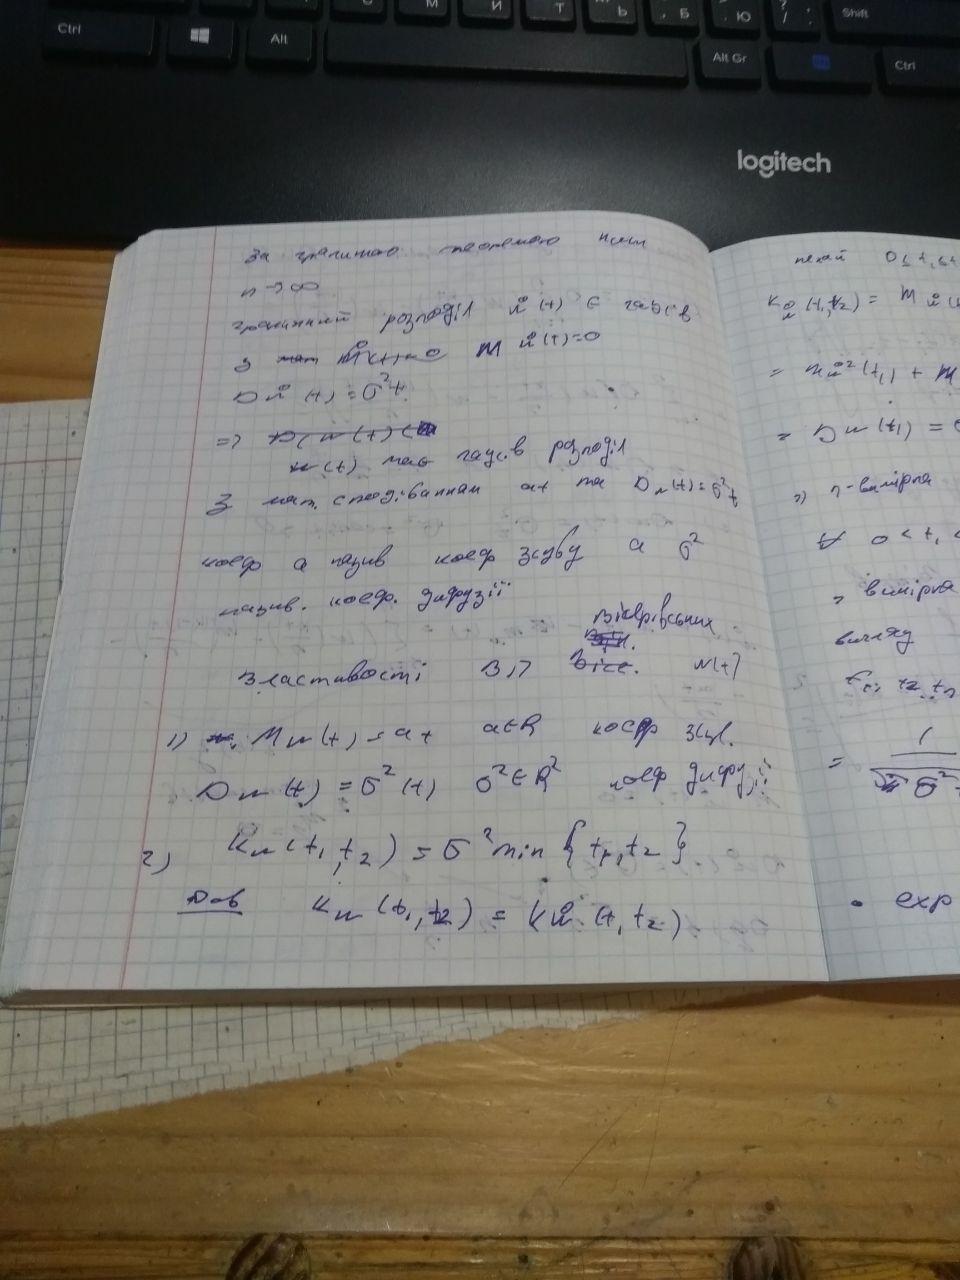 Ctrl
Alt
М
И
Т
Ь
Б
Ю
Shift
Alt Gr
Ctrl
logitech
За граничною теоремою при
n → ∞
граничний розподіл ẘ(t) є гаусів
з M ẘ(t)=0
D ẘ(t) = σ²t
=>
w(t) має гаусів розподіл
З мат. сподіванням at та D w(t)=σ²t
коеф a назив коеф зсуву а σ²
назив. коеф. дифузії
вінерівських
Властивості В.П w(t)
1) M w(t) = at a∈R коеф зсув.
D w(t) = σ²(t) σ²∈R² коеф дифузії
2) K w(t₁, t₂) = σ² min {t₁, t₂}
Дов K w(t₁, t₂) = K ẘ(t, t₂)
нехай 0 ≤ t₁ ≤ t
K ẘ(t₁,t₂) = M ẘ(
= M ẘ²(t₁) + M
= D w(t₁) =
n-вимірна
∀ 0 < t₁ <
вимірна
вигляду
t₁; t₂, tₙ
= 1
• exp